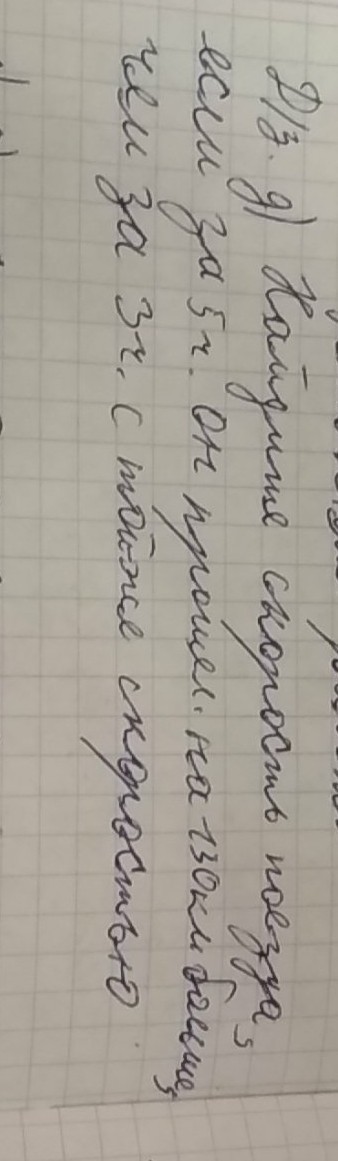 Д/з. д) Найдите скорость поезда,
если за 5 ч. он прошел на 130 км больше,
чем за 3ч. с той же скоростью